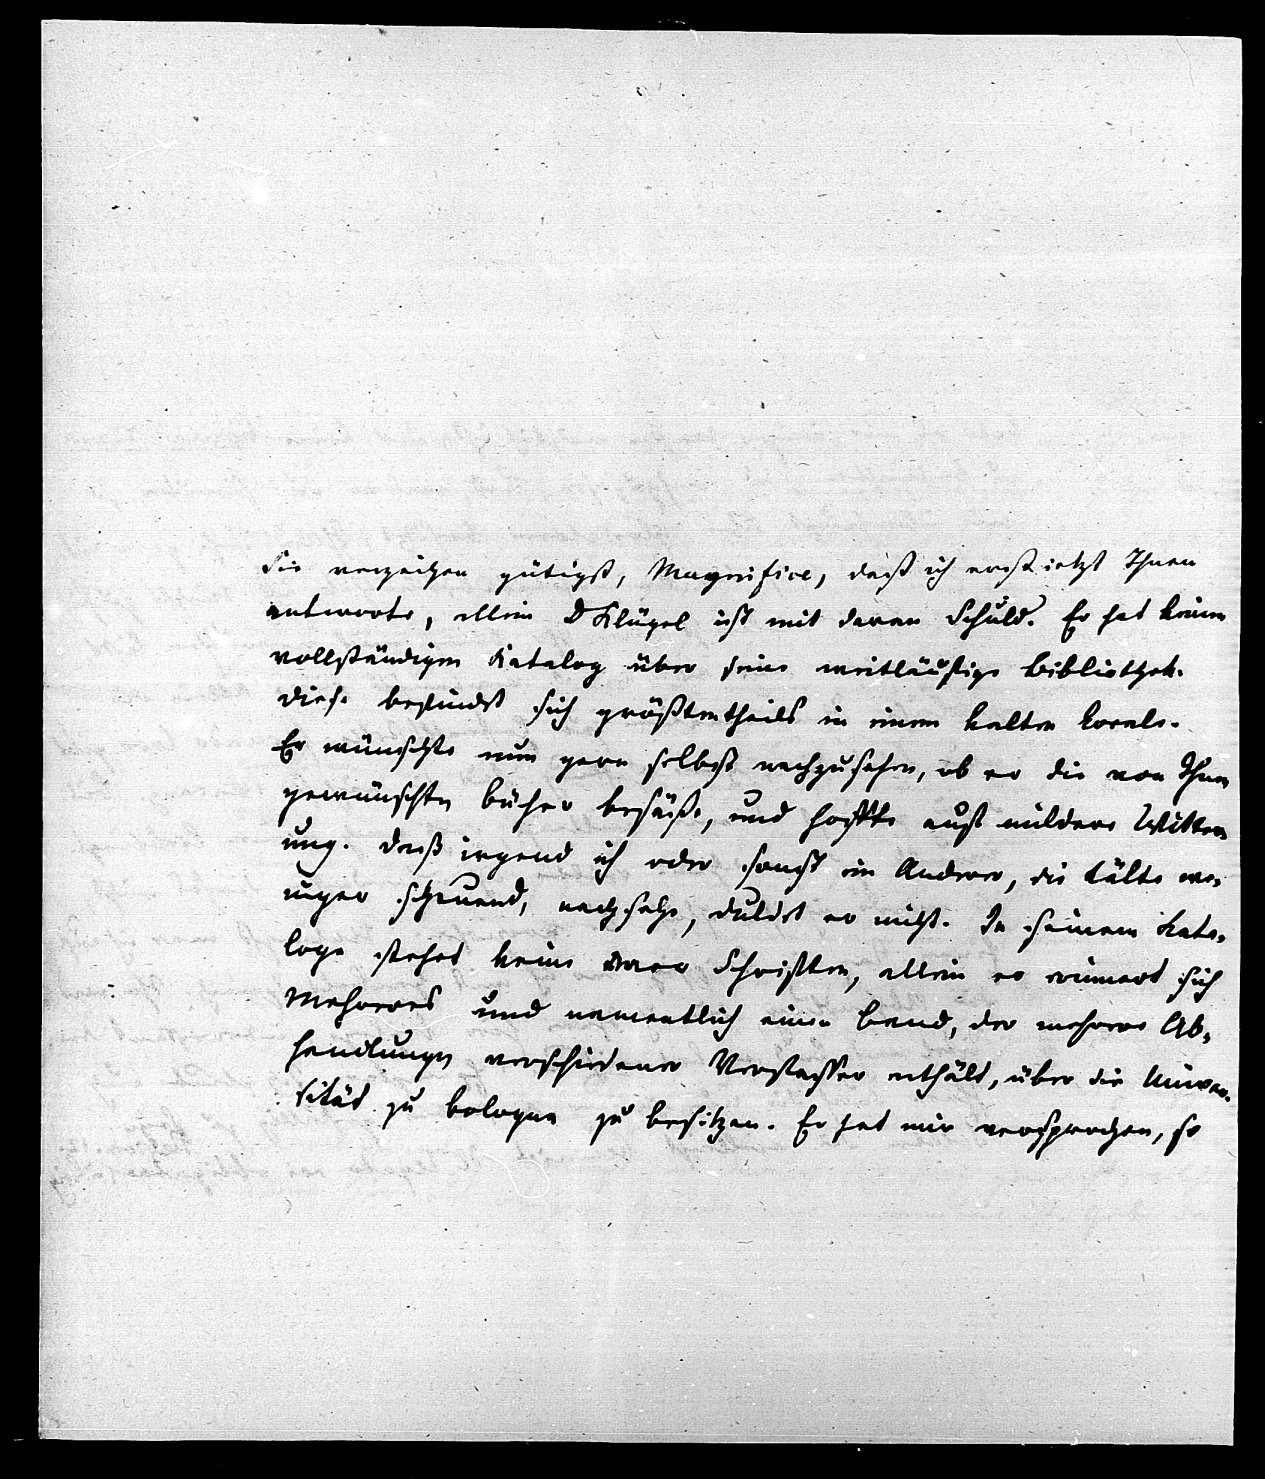 Sie verzeihen gütigst, Magnifice, daß ich erst jetzt Ihnen
antworte, allein D Klügel ist mit daran Schuld. Er hat keinen
vollständigen Katalog über seine weitläufige Bibliothek.
Diese befindet sich größtentheils in einem kalten Locale.
Er wünschte nun gern selbst nachzusehen, ob er die von Ihnen
gewünschten Bücher besäße, und hoffte auf mildere Witter
ung. Daß irgend ich oder sonst ein Anderer, die Kälte we-
niger scheuend, nachsehe, duldet er nicht. In seinem Kata-
loge stehet keine Ihrer Schriften, allein er erinnert sich
Mehreres und namentlich einen Band, der mehrere Ab-
handlungen verschiedener Verfasser enthält, über die Univer-
sität zu Bologna zu besitzen. Er hat mir versprochen, so